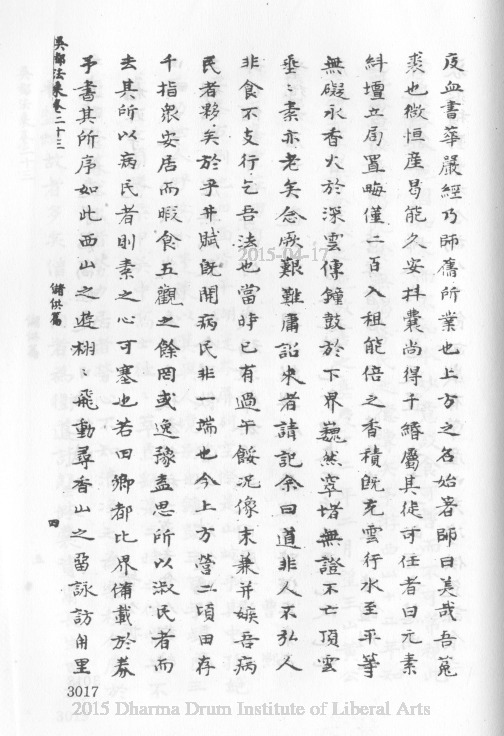 度血書華嚴經乃師舊所業也上方之名始著師曰美哉吾菟
裘也微恒產曷能久安抖囊尚得千緡屬其徒可任者曰元素
糾壇立局置畮僅二百入租能倍之香積既充雲行水至平等
無礙永香火於深雲傳鐘鼓於下界巍然窣堵無證不亡頂雲
垂垂素亦老矣念厥艱難庸詔來者請記余曰道非人不弘人
非食不支行乞吾法也當時已有過午餒况像末兼并嫉吾病
民者夥矣於乎井賦既開病民非一端也今上方營二頃田存
千指眾安居而暇食五觀之餘罔或逸豫盍思所以淑民者而
去其所以病民者則素之心可塞也若田鄉都比界備載於券
予書其所序如此西山之遊栩栩飛動尋香山之留詠訪甪里
吳都法乘卷二十三
餙供篇
四
3017
2015-04-17
2015 Dharma Drum Institute of Liberal Arts